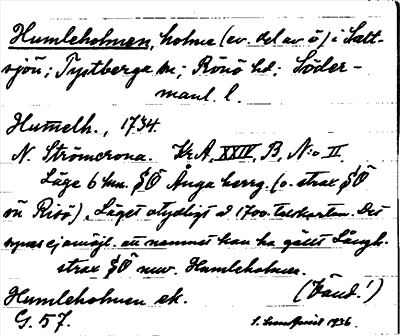 Humleholmen, holme (ev. del av ö) i Lått-
sjön; Tystberga sn; Rönö hd; Söder-
manl. l.
Humelh., 1734.
N. Strömcrona. Kr.A. XXIV, B, N:o II.
Läge 6 km. SÖ Ånga herrg. (o. strax SÖ
ön Risö). Läget otydligt å 1700-talskartan. Det
synes ej omöjl. att namnet kan ha gällt Långh.
strax SÖ nuv. Humleholmen.
Humleholmen ek. (Länd.!)
G. 57. 1936.